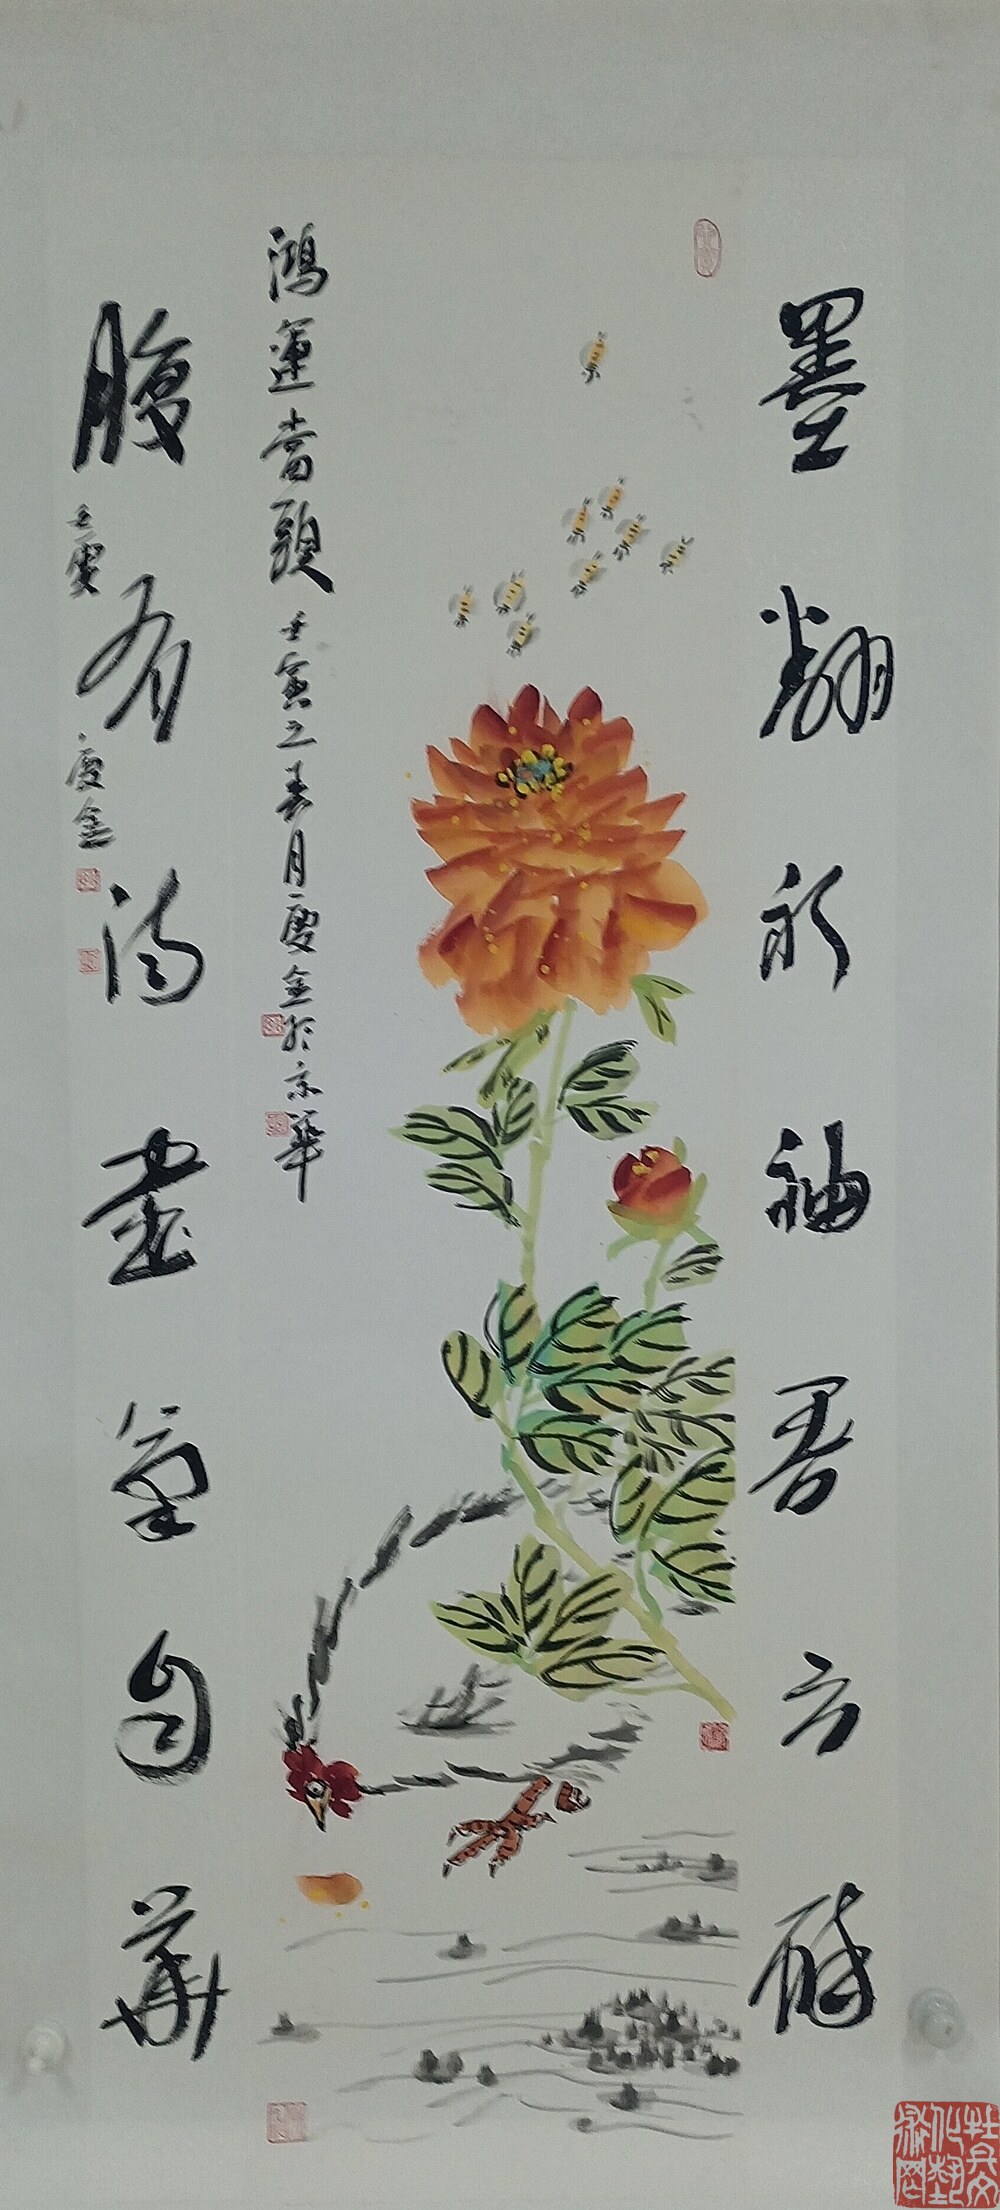 墨翻衫袖吾方醉
鴻運當頭
壬寅之春月慶金於京華
腹有诗書氣自華
壬寅 慶金